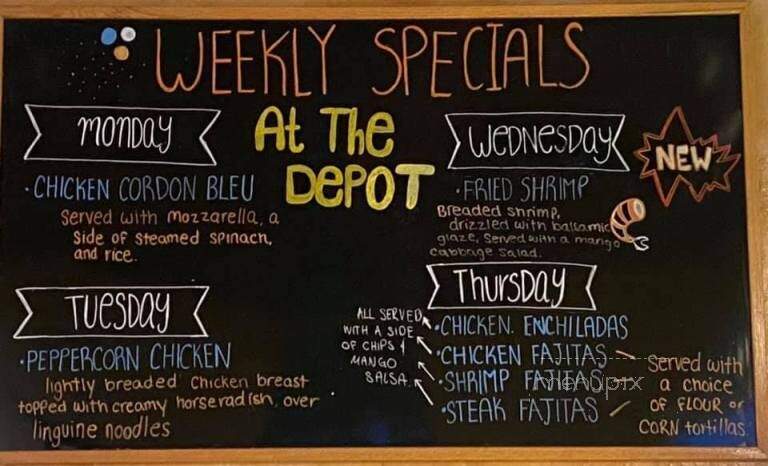 WEEKLY SPECIALS
At The
DEPOT
MONDAY
• CHICKEN CORDON BLEU
Served with mozzarella, a
side of steamed spinach,
and rice.
TUESDAY
• PEPPERCORN CHICKEN
lightly breaded chicken breast
topped with creamy horseradish, over
linguine noodles
WEDNESDAY
NEW
• FRIED SHRIMP
Breaded shrimp,
drizzled with balsamic
glaze, Served with a mango
cabbage salad.
Thursday
• CHICKEN. ENCHILADAS
• CHICKEN FAJITAS
• SHRIMP FAJITAS
• STEAK FAJITAS
ALL SERVED
WITH A SIDE
OF CHIPS &
MANGO
SALSA.
Served with
a choice
OF FLOUR or
CORN tortillas.
menupix